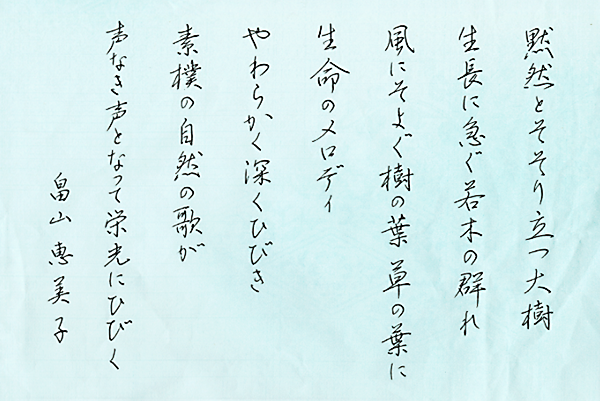 黙然とそそり立つ大樹
生長に急ぐ若木の群れ
風にそよぐ樹の葉 草の葉に
生命のメロディ
やわらかく深くひびき
素樸の自然の歌が
声なき声となって栄光にひびく
畠山恵美子